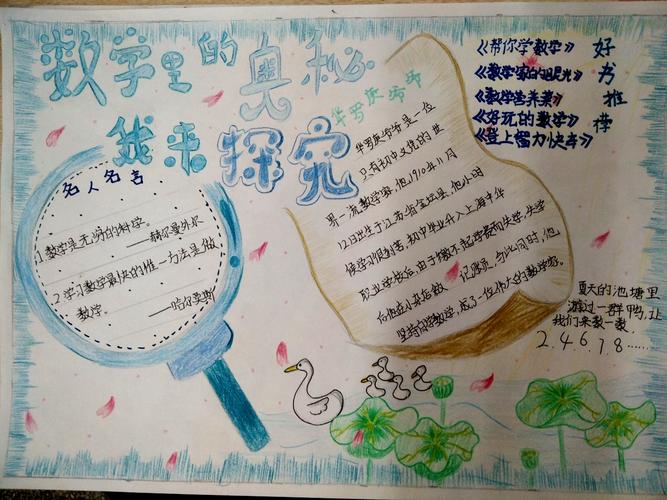 数学里的奥秘
我来探究
名人名言
1 数学是无穷的科学。
——赫尔曼外尔
2 学习数学最快的唯一方法是做
数学。
——哈尔莫斯
华罗庚爷爷
华罗庚爷爷是一位
只有初中文凭的世
界一流数学家,他1910年11月
12日出生于江西省金坛县,他小时
候学习很刻苦 初中毕业升入上海中华
职业学校后,由于缴不起学费而失学,失学
后他在小杂货铺 记账员,与此同时,他
坚持自学数学,成了一位伟大的数学家。
《帮你学数学》
《数学家的眼光》
《数学营养菜》
《好玩的数学》
《登上智力快车》
好
书
推
荐
夏天的池塘里
游过一群鸭,让
我们来数一数
2.4.6.7.8……